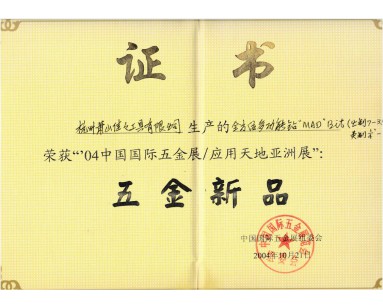 证书
杭州萧山佳之工具有限公司 生产的 全方位多功能钻"MAD"B法
荣获"'04中国国际五金展/应用天地亚洲展":
五金新品
中国国际五金展组委会
2004年10月21日